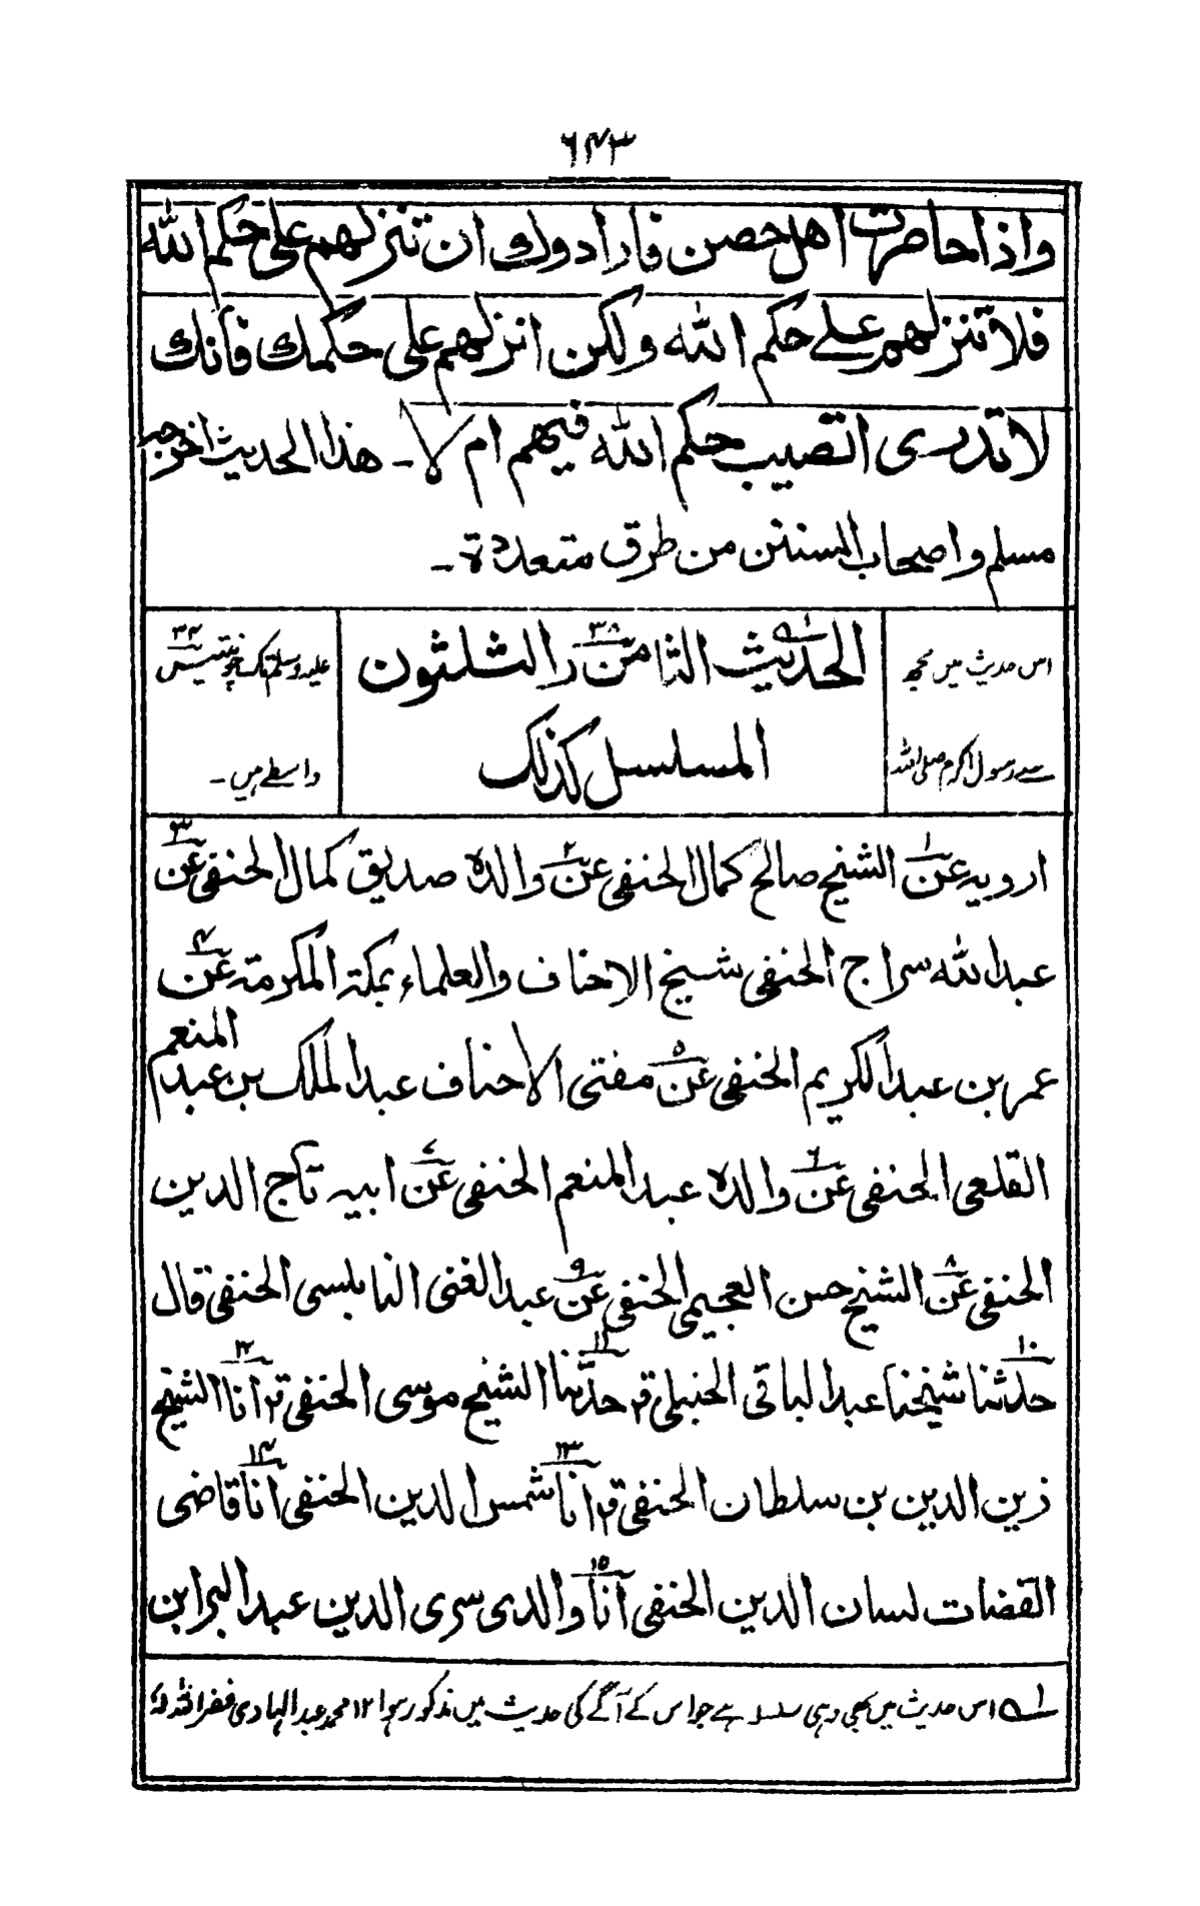 ٦٤٣
واذا حاصرت اهل حصن فارادوك ان تنزلهم على حكم الله
فلا تنزلهم على حكم الله ولكن انزلهم على حكمك فانك
لا تدرى اتصيب حكم الله فيهم ام لا ۔ هذا الحديث اخرجه
مسلم واصحاب السنن من طرق متعددة ۔
اس حدیث میں مجھ
سے رسول اکرم صلی اللہ
الحديث الثامن والثلثون ٣٨
المسلسل كذلك
علیہ وسلم تک چونتیس ٣٤
واسطے ہیں ۔
ارويه عن١ الشيخ صالح كمال الحنفى عن٢ والده صديق كمال الحنفى عن٣
عبد الله سراج الحنفى شيخ الاحناف والعلماء بمكة المكرمة عن٤
عمر بن عبد الكريم الحنفى عن٥ مفتى الاحناف عبد الملك بن عبد المنعم
القلعى الحنفى عن٦ والده عبد المنعم الحنفى عن٧ ابيه تاج الدين
الحنفى عن٨ الشيخ حسن العجيمى الحنفى عن٩ عبد الغنى النابلسى الحنفى قال
حدثنا١٠ شيخنا عبد الباقى الحنبلى قال حدثنا١١ الشيخ موسى الحنفى قال انا١٢ الشيخ
زين الدين بن سلطان الحنفى قال انا١٣ شمس الدين الحنفى انا١٤ قاضى
القضات لسان الدين الحنفى انا١٥ والدى سرى الدين عبد البر ابن
۱ اس حدیث میں بھی وہی سلسلہ ہے جو اس کے آگے کی حدیث میں مذکور ہوا ۱۲ محمد عبد الہادی غفر اللہ لہ